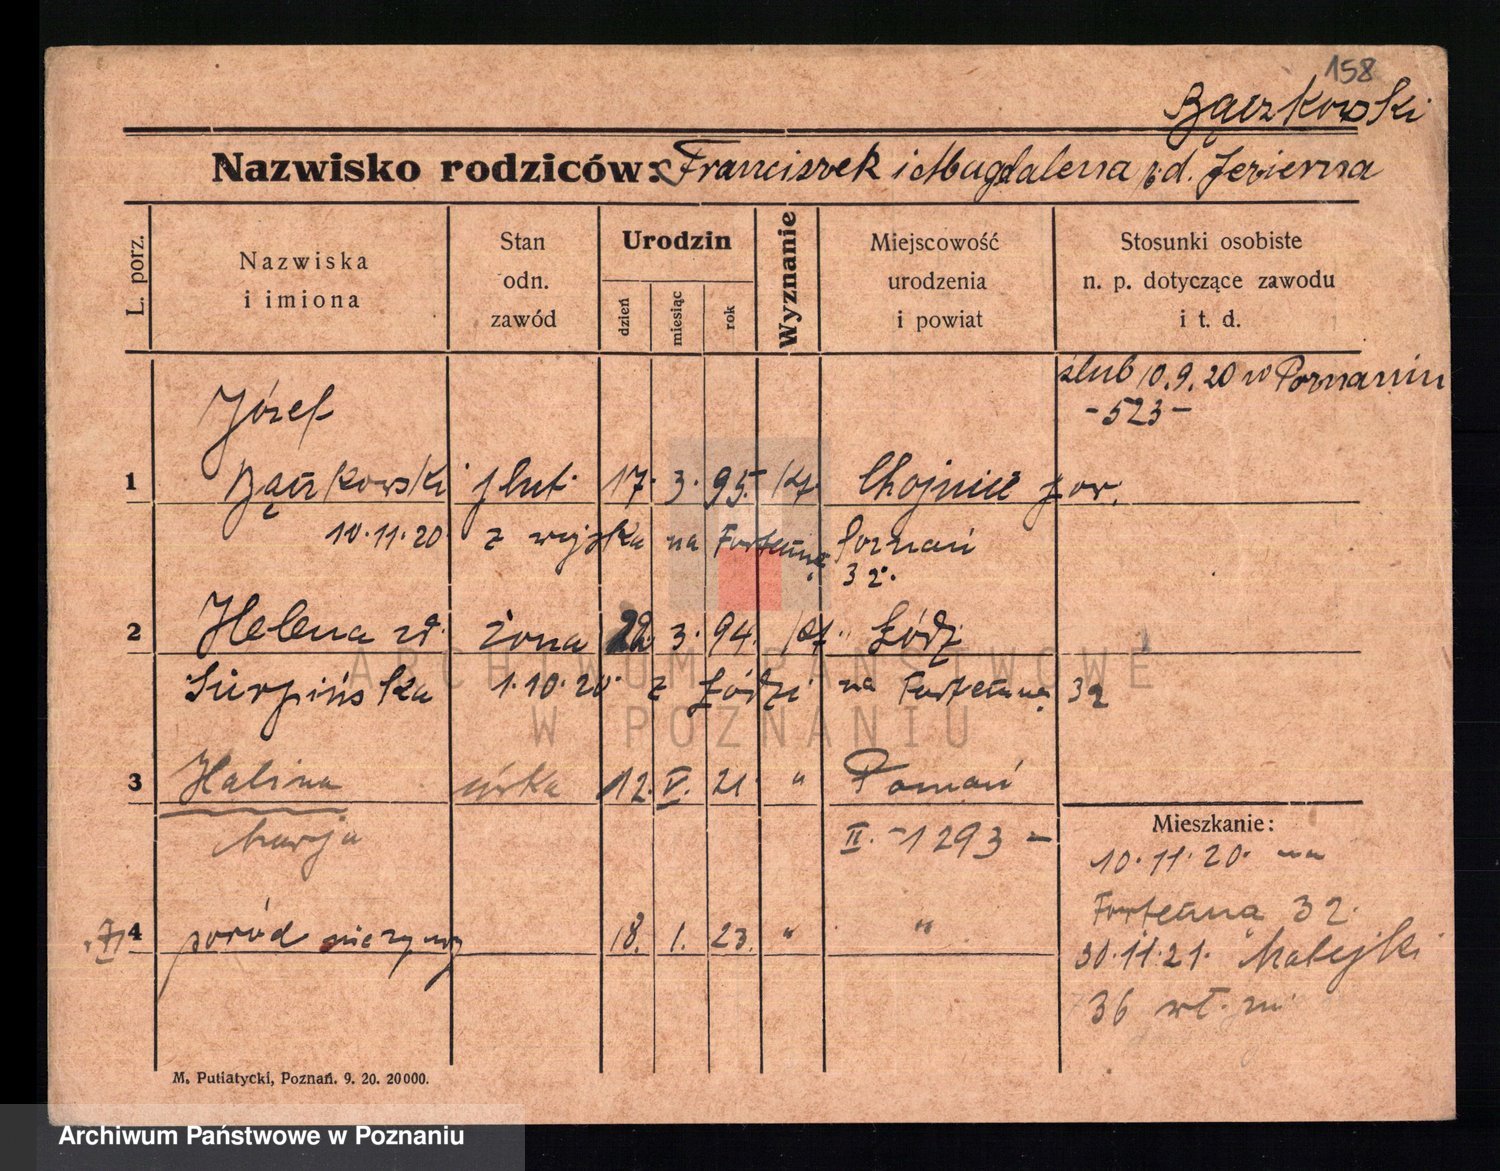 158
Bączkowski
Nazwisko rodziców: Franciszek i Magdalena z d. Jezierna
L. porz.
Nazwiska
i imiona
Stan
odn.
zawód
Urodzin
dzień
miesiąc
rok
Wyznanie
Miejscowość
urodzenia
i powiat
Stosunki osobiste
n. p. dotyczące zawodu
i t. d.
ślub 10.9.20 w Poznaniu
-523-
Józef
1 Bączkowski plut. 17. 3. 95. kt. Chojnice pow.
10.11.20 z wojska na Forteczną Poznań
32.
2 Helena zd. żona 22. 3. 94. kt. Łódź
Sierpińska 1.10.20 z Łodzi na Forteczną 32
3 Halina córka 12. V. 21 " Poznań
Marja II. -1293-
4 poród nieżywy 18. 1. 23. " "
Mieszkanie:
10.11.20. na
Forteczna 32.
30.11.21. Matejki
36 wł. m.
M. Putiatycki, Poznań. 9. 20. 20000.
ARCHIWUM PAŃSTWOWE
W POZNANIU
Archiwum Państwowe w Poznaniu